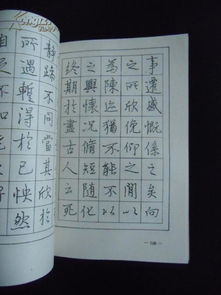 事遷感慨係之矣向
之所欣俛仰之閒以
為陳迹猶不能不以
之興懷況脩短隨化
終期於盡古人云死
靜躁不同當其欣於
所遇暫得於己怏然